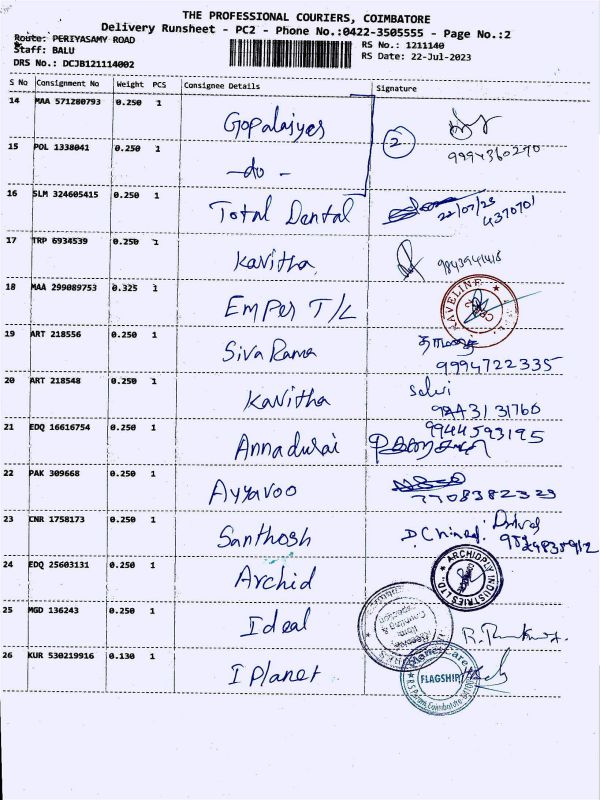 THE PROFESSIONAL COURIERS, COIMBATORE
Delivery Runsheet - PC2 - Phone No.:0422-3505555 - Page No.:2
Route: PERIYASAMY ROAD
RS No.: 1211140
Staff: BALU
RS Date: 22-Jul-2023
DRS No.: DCJB121114002
S No Consignment No Weight PCS Consignee Details Signature
14 MAA 571280793 0.250 1 Gopalaiyes
2
15 POL 1338041 0.250 1 -do- 9994360270
16 SLM 324605415 0.250 1 Total Dental 22/07/23
4370701
17 TRP 6934539 0.250 1 Kavitha 9843941418
18 MAA 299089753 0.325 1 Emper T/L
19 ART 218556 0.250 1 Siva Rama
9994722335
20 ART 218548 0.250 1 Kavitha Selvi
9443131760
21 EDQ 16616754 0.250 1 Annadurai 9944593195
22 PAK 309668 0.250 1 Ayyavoo
7708382329
23 CNR 1758173 0.250 1 Santhosh
24 EDQ 25603131 0.250 1 Archid ARCHIDPLY INDUSTRIES LTD
25 MGD 136243 0.250 1 Ideal
26 KUR 530219916 0.130 1 I Planet FLAGSHIP